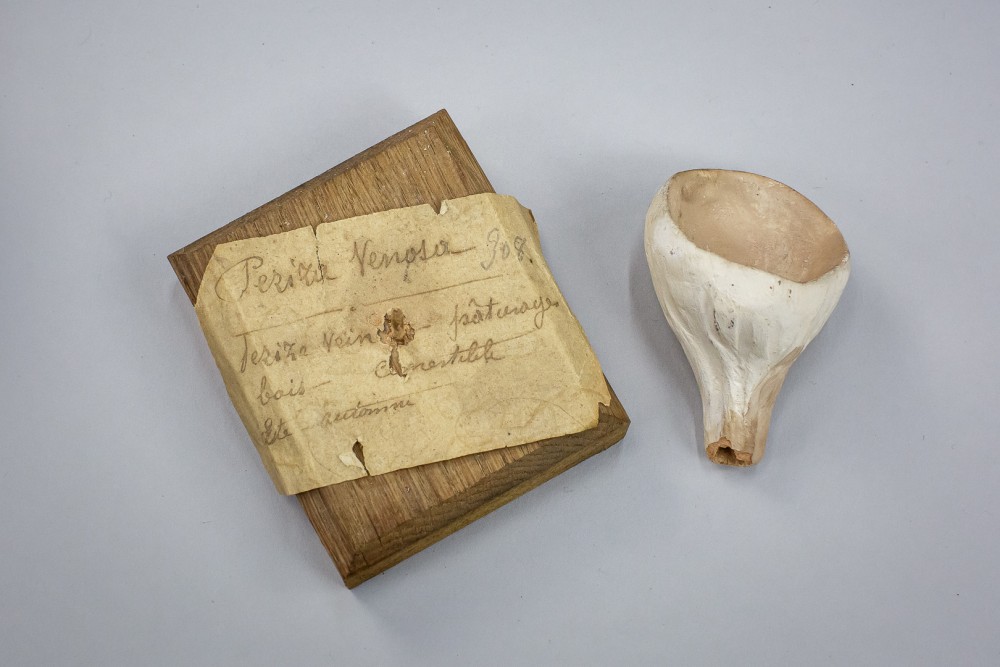 Peziza Venosa 908.
Peziza Vein pâturage
bois comestible
Eté automne